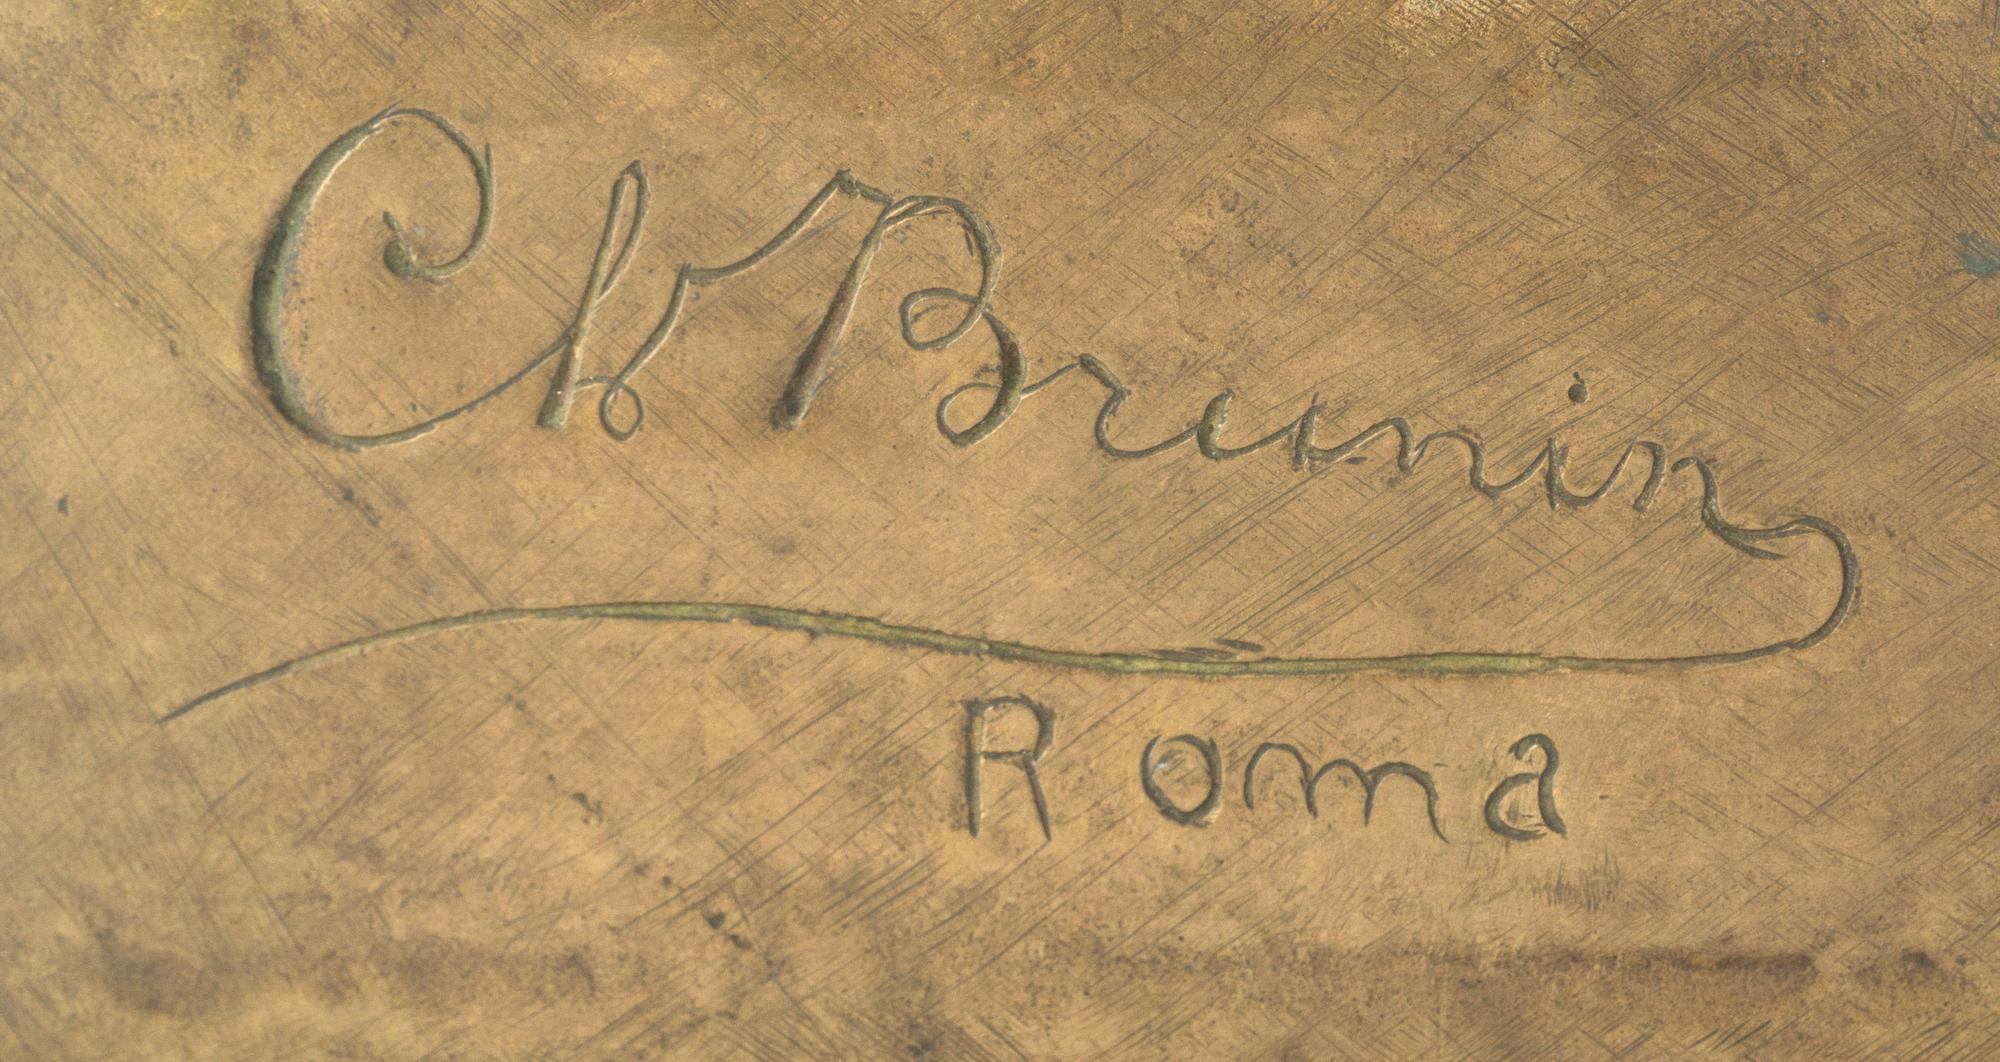 Ch Brunin
Roma